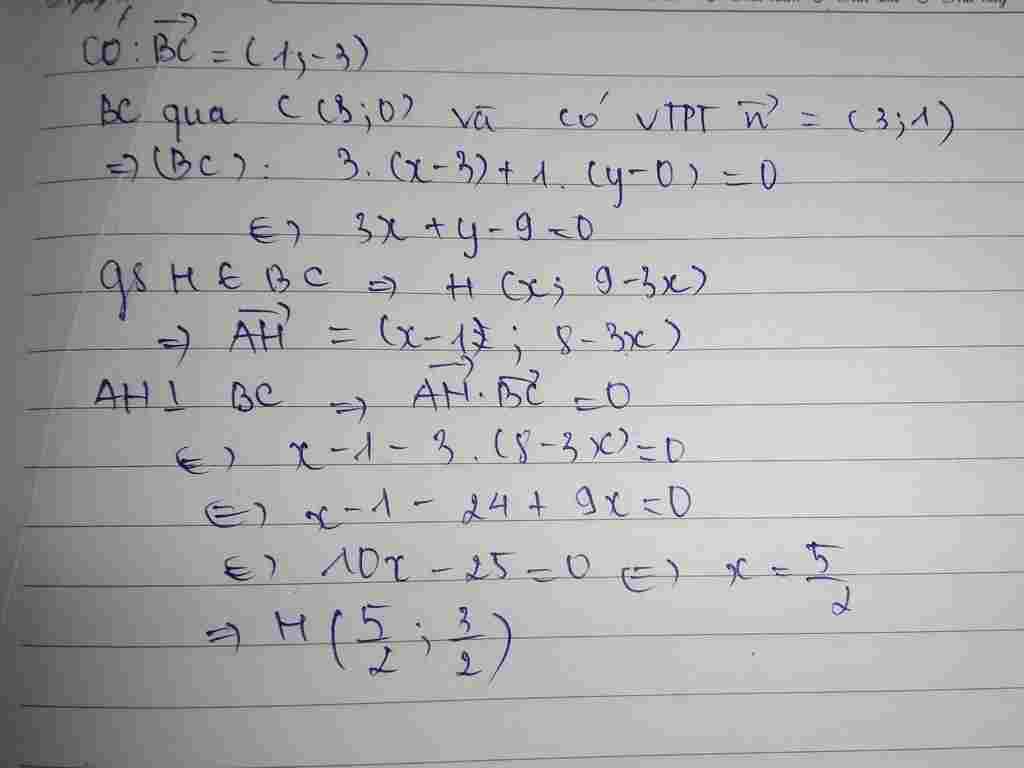 Có: BC→ = (1; -3)
BC qua C (3; 0) và có VTPT n→ = (3; 1)
=> (BC): 3. (x-3) + 1. (y-0) = 0
<=> 3x + y - 9 = 0
gs H ∈ BC => H (x; 9-3x)
=> AH→ = (x-1; 8-3x)
AH ⊥ BC => AH→ . BC→ = 0
<=> x - 1 - 3. (8-3x) = 0
<=> x - 1 - 24 + 9x = 0
<=> 10x - 25 = 0 <=> x = 5/2
=> H (5/2; 3/2)